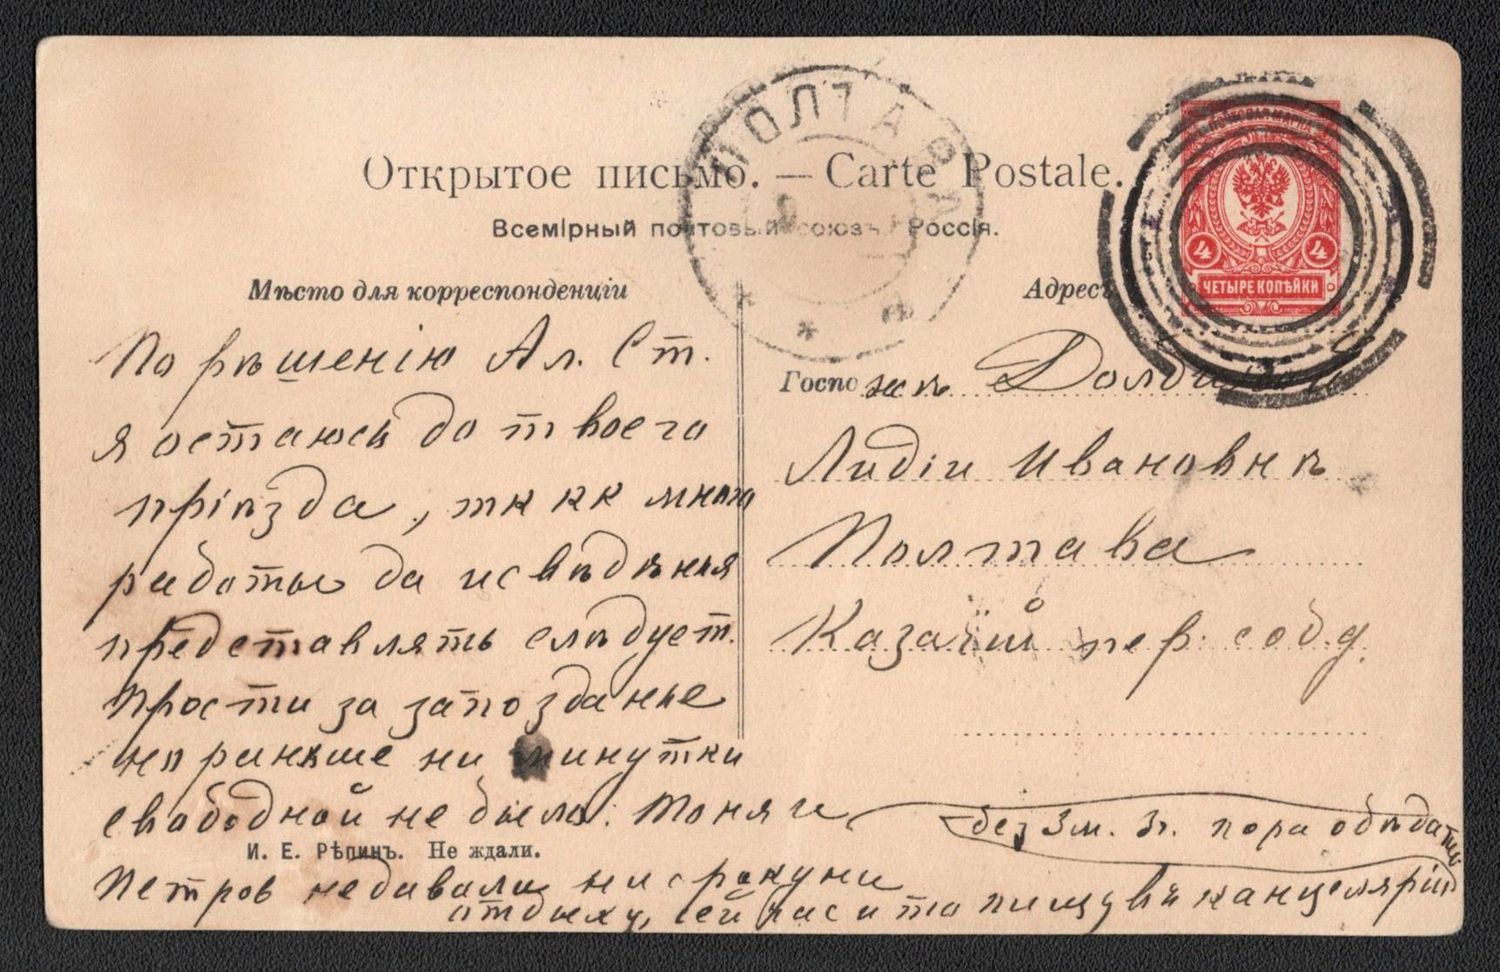 ПОЛТАВА
Открытое письмо. — Carte Postale.
Всемірный почтовый союзъ. Россія.
Мѣсто для корреспонденціи
Адресъ
ПОЧТОВАЯ МАРКА
4 4
ЧЕТЫРЕ КОПѢЙКИ
По рѣшенію Ал. Ст.
я остаюсь до твоего
пріѣзда, тк кк много
работы да и свѣдѣнья
представлять слѣдует.
Прости за запозданье
но раньше ни минутки
свободной не было: Тоня и
Петров не давали ни секунды
отдыху, сейчас и то пишу въ канцеляріи
без 3 м. 3 ч. пора обѣдать
И. Е. Рѣпинъ. Не ждали.
Госпожѣ
Лидіи Ивановнѣ
Полтава
Казачій пер. соб. д.